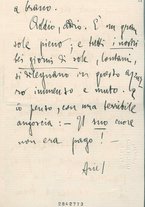 a branco.
Addio, addio. E' un gran
sole pieno; e tutti i nostri
bei giorni di sole, lontani,
si dileguano in questo
immenso e muto. Io
ci penso, con una terribile
angoscia: - Il suo cuore
non era pago!
Ariel